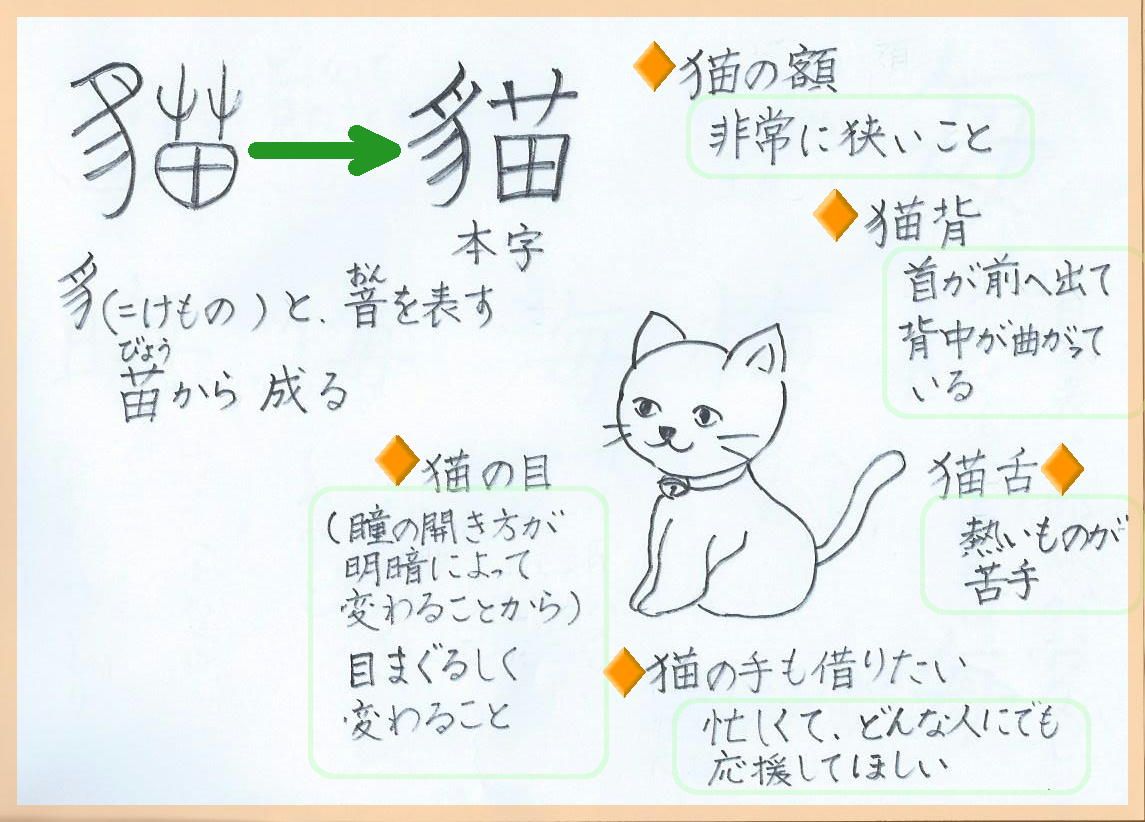 貓 → 貓
本字
豸(=けもの)と、音を表す
おん
びょう
苗から成る
猫の額
非常に狭いこと
猫背
首が前へ出て
背中が曲がって
いる
猫舌
熱いものが
苦手
猫の目
(瞳の開き方が
明暗によって
変わることから)
目まぐるしく
変わること
猫の手も借りたい
忙しくて、どんな人にでも
応援してほしい